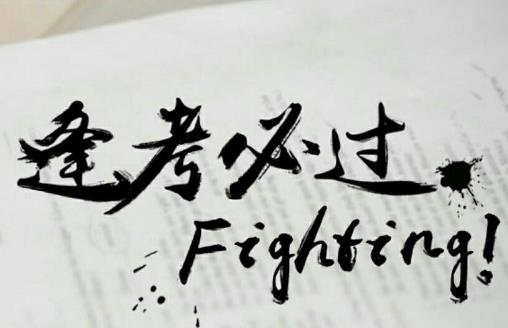 逢考必过
Fighting!